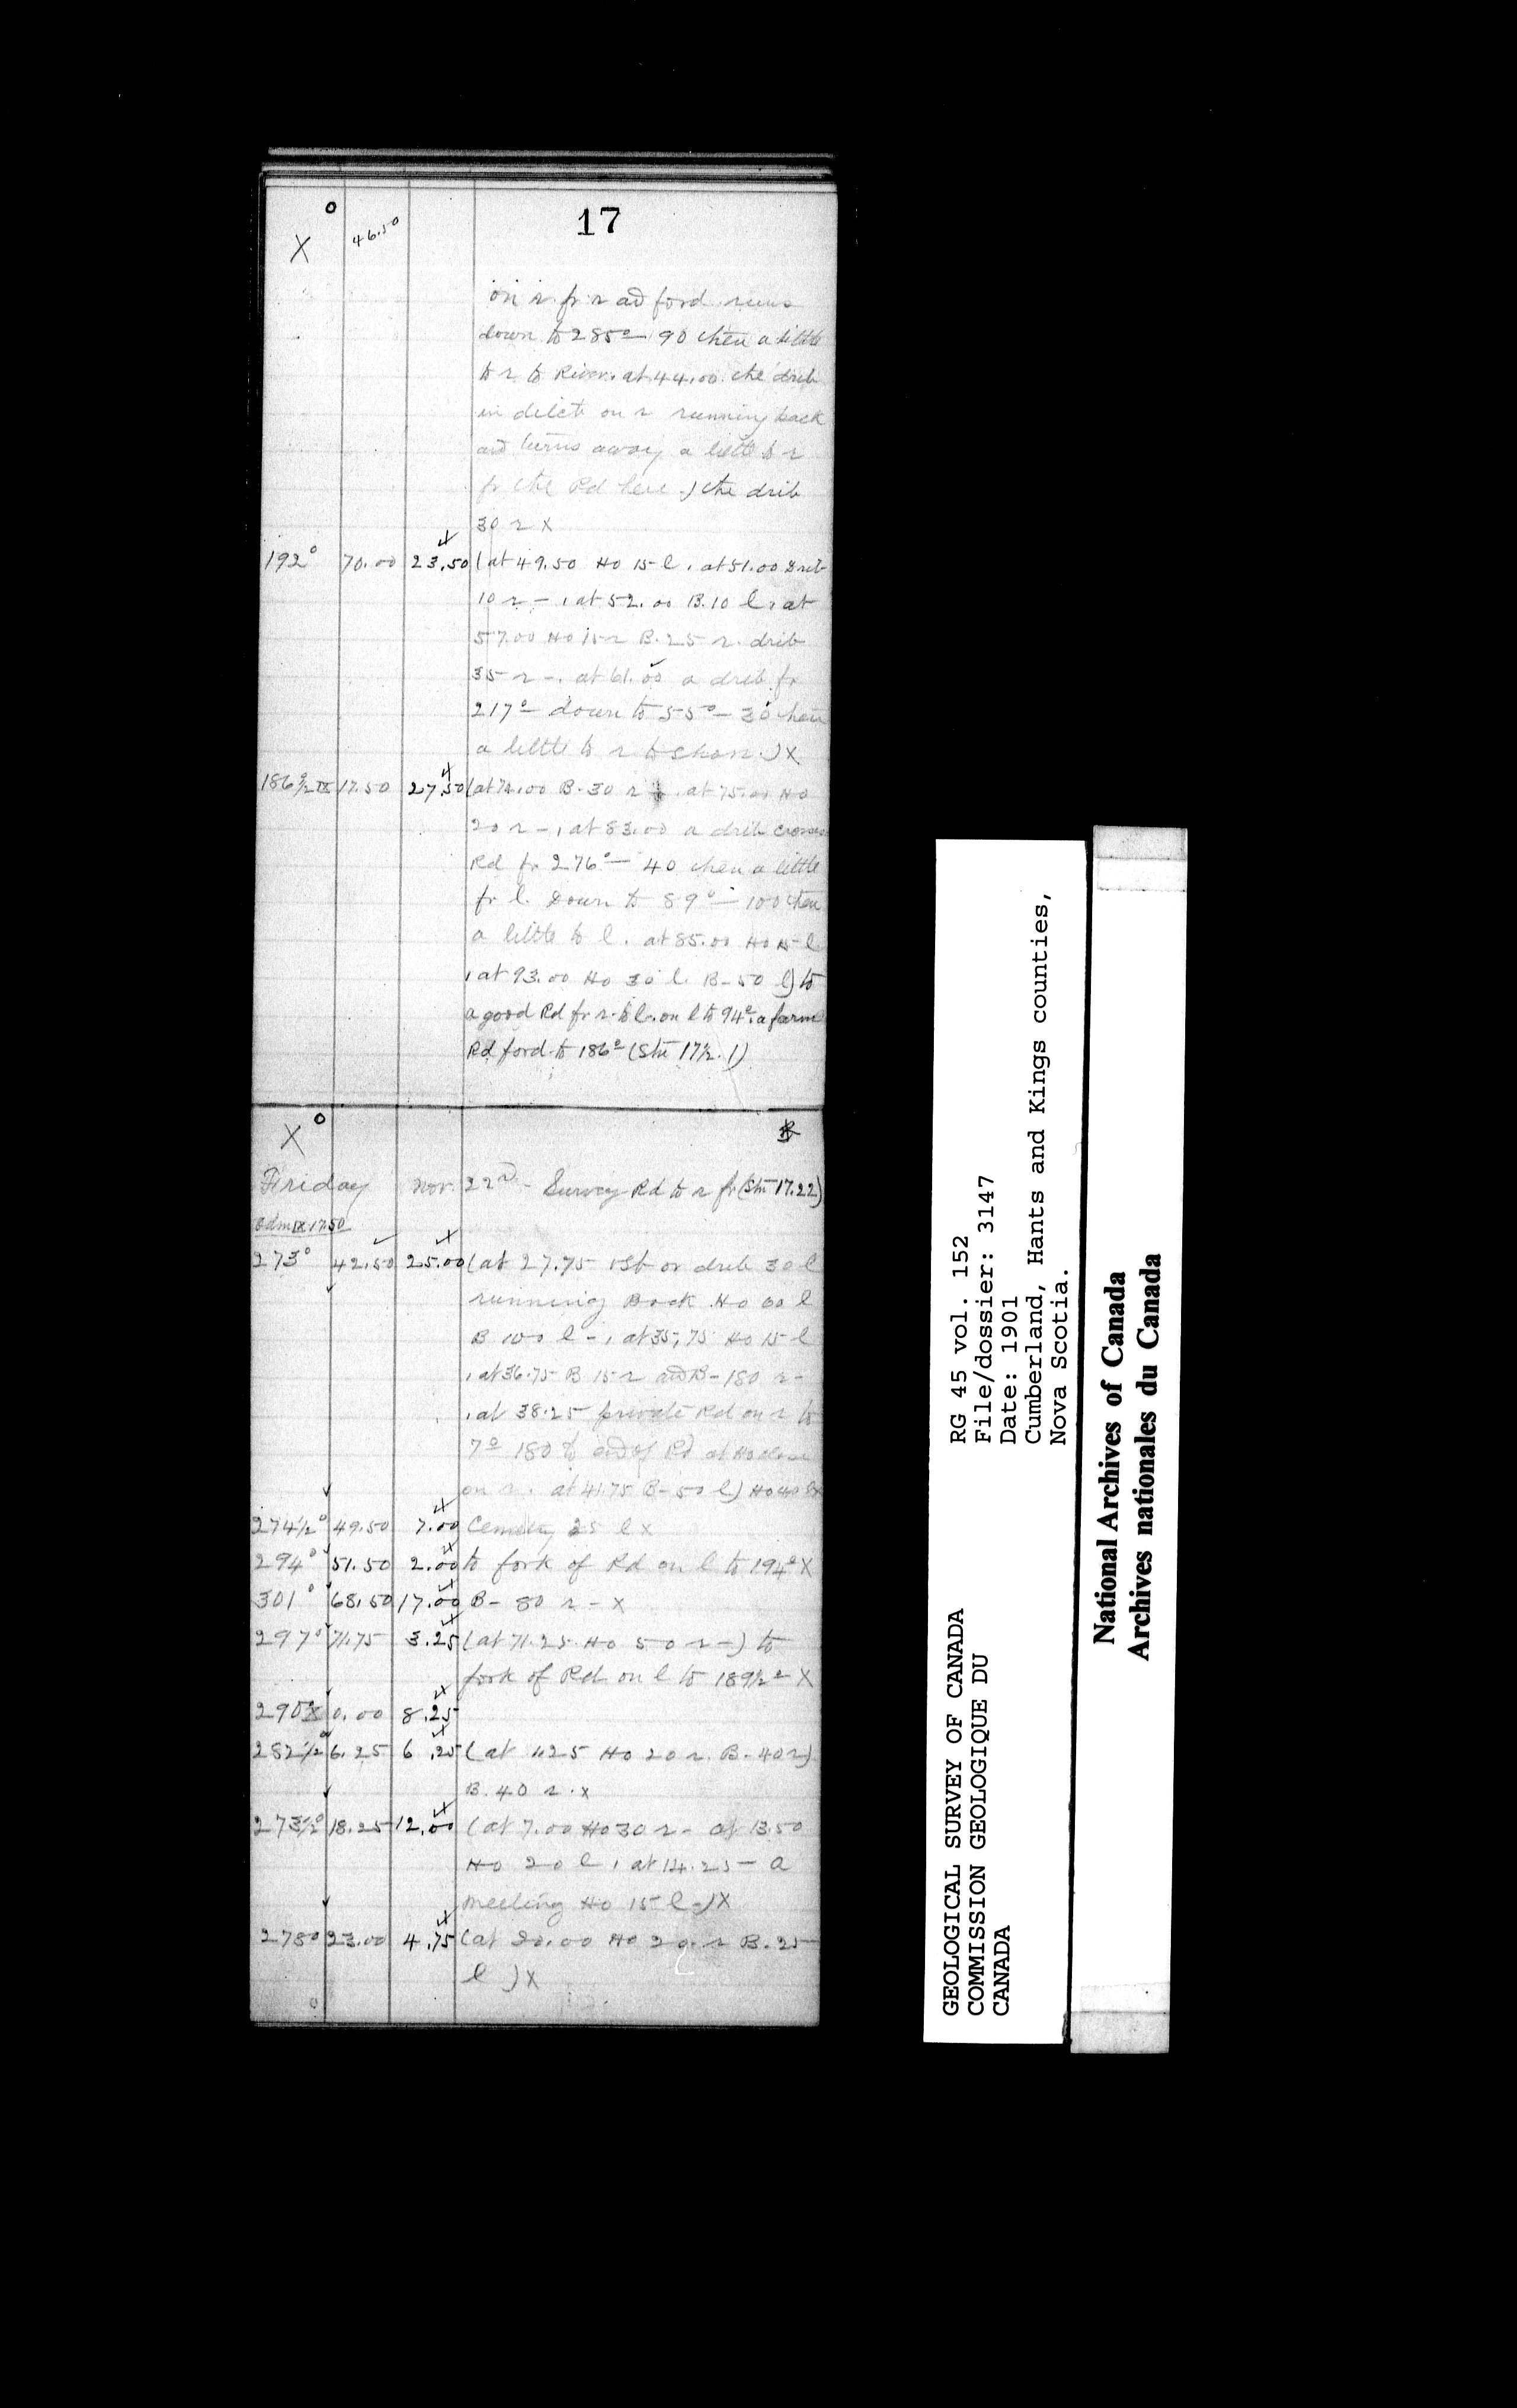 17
X ° 46.50
on r fr r and ford runs
down to 285° 90 then a little
to r to River. at 44.00 the drib
in delct on r running back
and turns away a little to r
fr the Rd here.) the drib
30 r X
192° 70.00 23.50 (at 49.50 Ho 15 l. at 51.00 Drib
10 r -, at 52.00 B. 10 l, at
57.00 Ho 15 r B. 25 r. drib
35 r -. at 61.00 a drib fr
217° down to 55° - 30 then
a little to r to shore.) X
186½° IX 17.50 27.50 (at 72.00 B - 30 r. at 75.00 Ho
20 r -, at 83.00 a drib crosses
Rd fr 276° - 40 then a little
fr l. Down to 89° - 100 then
a little to l. at 85.00 Ho 15 l
, at 93.00 Ho 30 l. B - 50 l) to
a good Rd fr r to l. on l to 94°. a farm
Rd ford to 186° (Stn 17½. 1)
X °
Friday Nov. 22nd - Survey Rd to r fr (Stn 17.22)
odm IX 17.50
273° 42.50 25.00 (at 27.75 drib 30 l
running Back Ho 60 l
B 100 l -, at 35.75 Ho 15 l
, at 36.75 B 15 r and B - 180 r -
, at 38.25 private Rd on r to
7° 180 to end of Rd at Ho
on r. at 41.75 B - 50 l) Ho 40 l X
274½° 49.50 7.00 Cemetery 25 l X
294° 51.50 2.00 to fork of Rd on l to 194° X
301° 68.50 17.00 B - 80 r - X
297° 71.75 3.25 (at 71.25 Ho 50 r -) to
fork of Rd on l to 189½° X
290° X 0.00 8.25
282½° 6.25 6.25 (at 4.25 Ho 20 r. B - 40 r)
B. 40 r. X
273½° 18.25 12.00 (at 7.00 Ho 30 r - at 13.50
Ho 20 l, at 14.25 - a
meeting Ho 15 l -) X
278° 23.00 4.75 (at 20.00 Ho 20 r B. 25
l ) X
GEOLOGICAL SURVEY OF CANADA
COMMISSION GEOLOGIQUE DU
CANADA
RG 45 vol. 152
File/dossier: 3147
Date: 1901
Cumberland, Hants and Kings counties,
Nova Scotia.
National Archives of Canada
Archives nationales du Canada